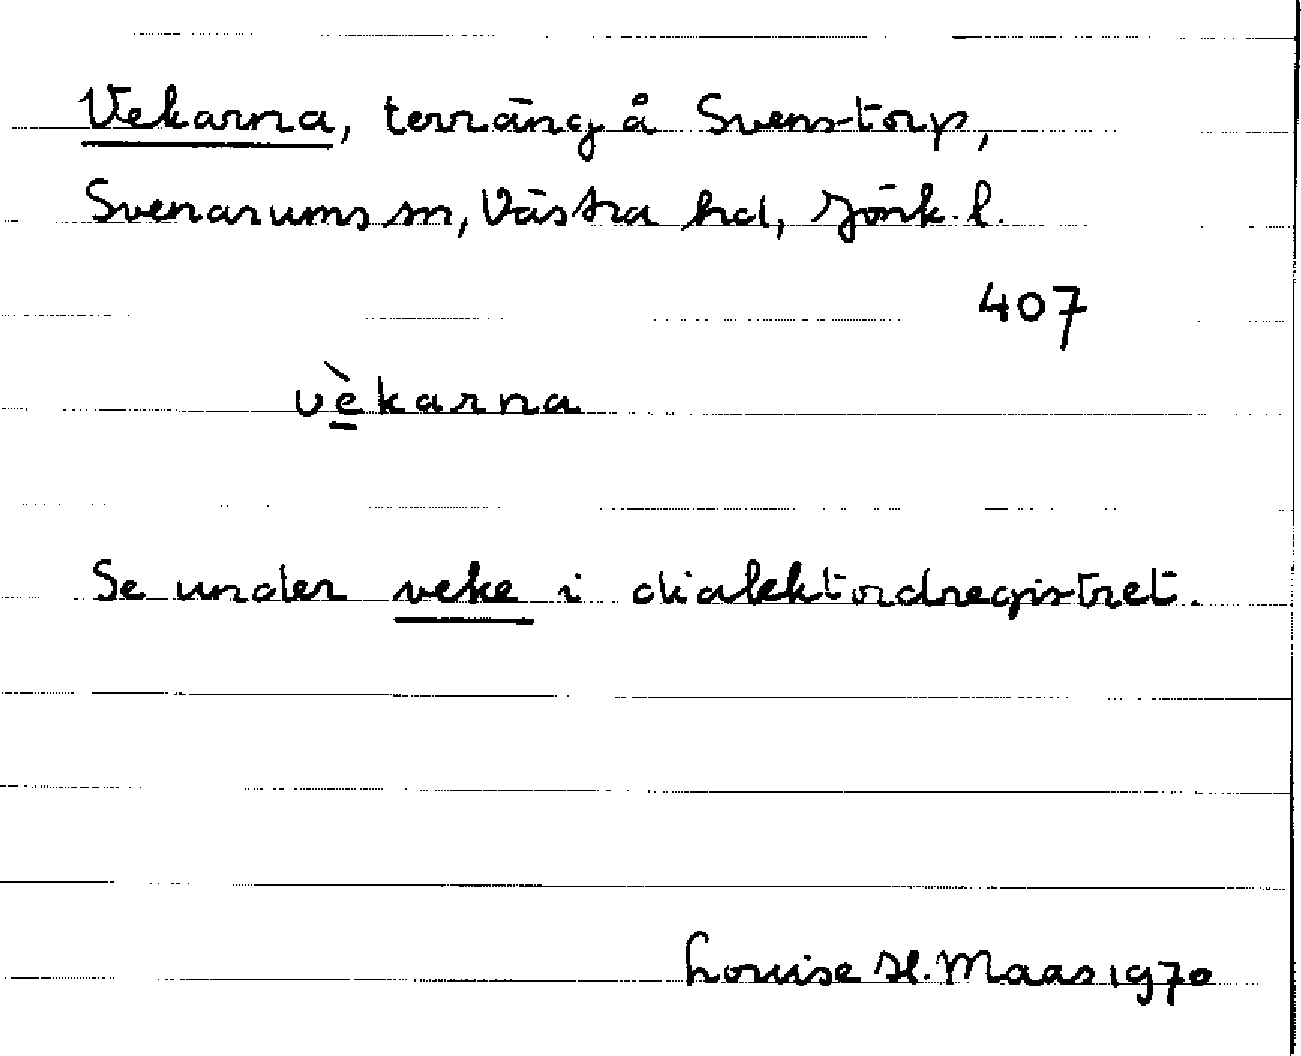 Vekarna, terräng å Svenstorp,
Svenarums sn, Västra hd, Jönk. l.
407
vèkarna
Se under veke i dialektordregistret.
Louise H. Maas 1970